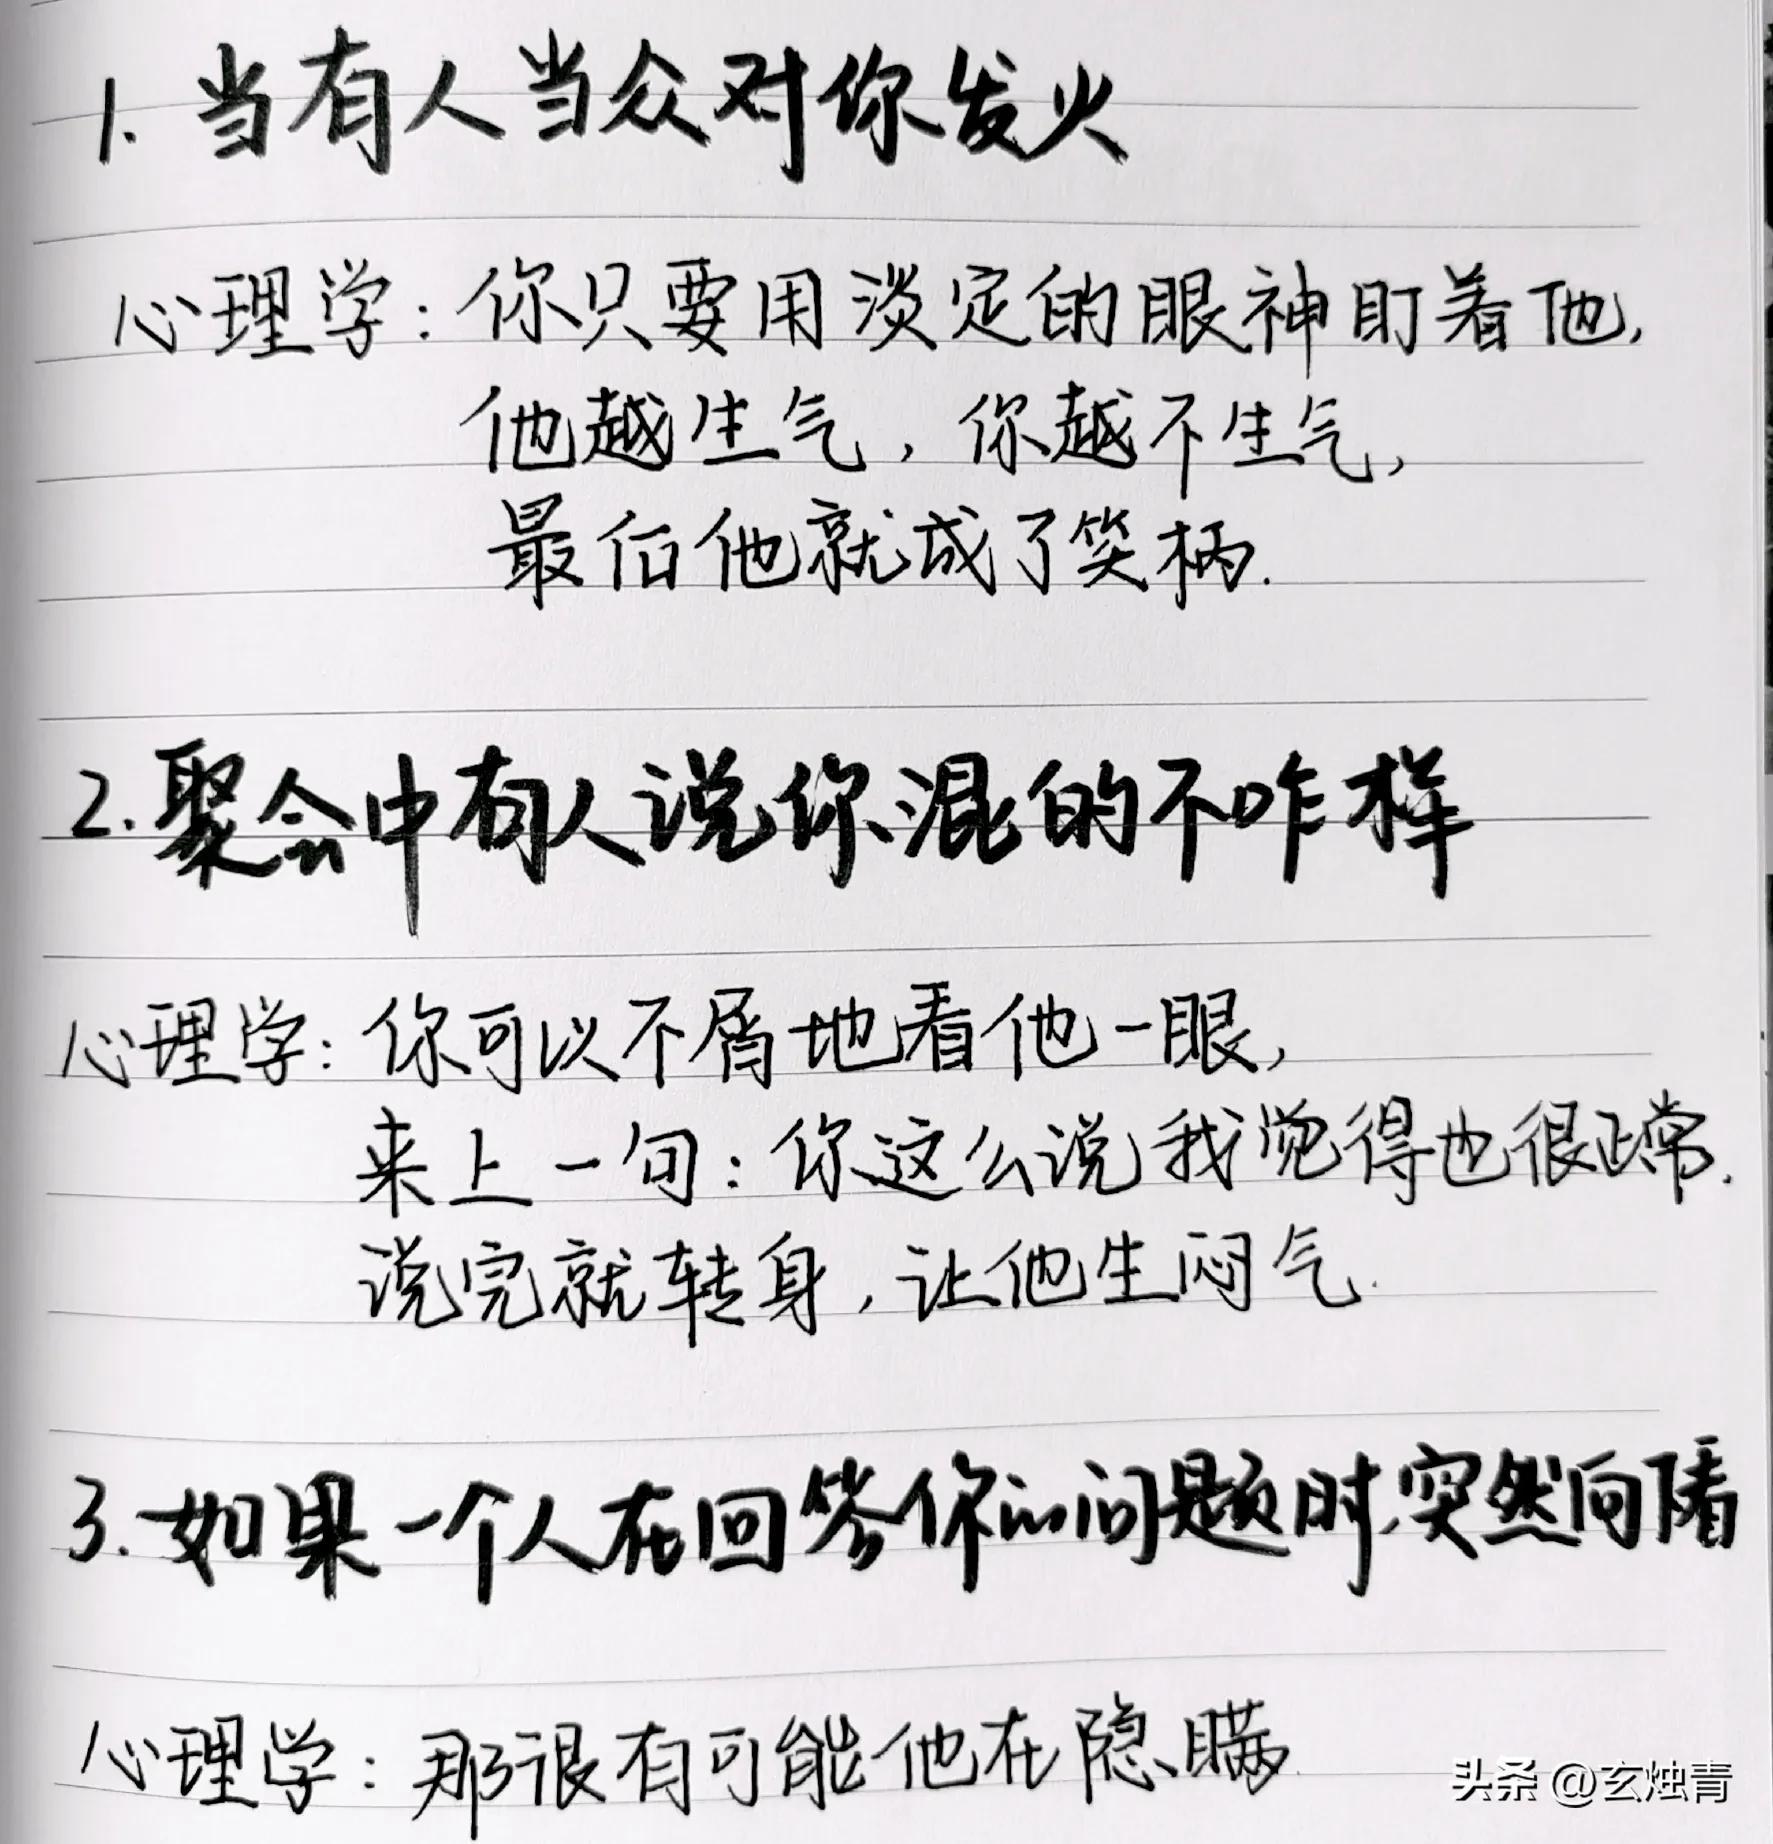 1. 当有人当众对你发火
心理学：你只要用淡定的眼神盯着他，
他越生气，你越不生气，
最后他就成了笑柄.
2. 聚会中有人说你混的不咋样
心理学：你可以不屑地看他一眼，
来上一句：你这么说我觉得也很正常.
说完就转身，让他生闷气.
3. 如果一个人在回答你的问题时,突然向下看
心理学：那很有可能他在隐瞒
头条 @玄烛青